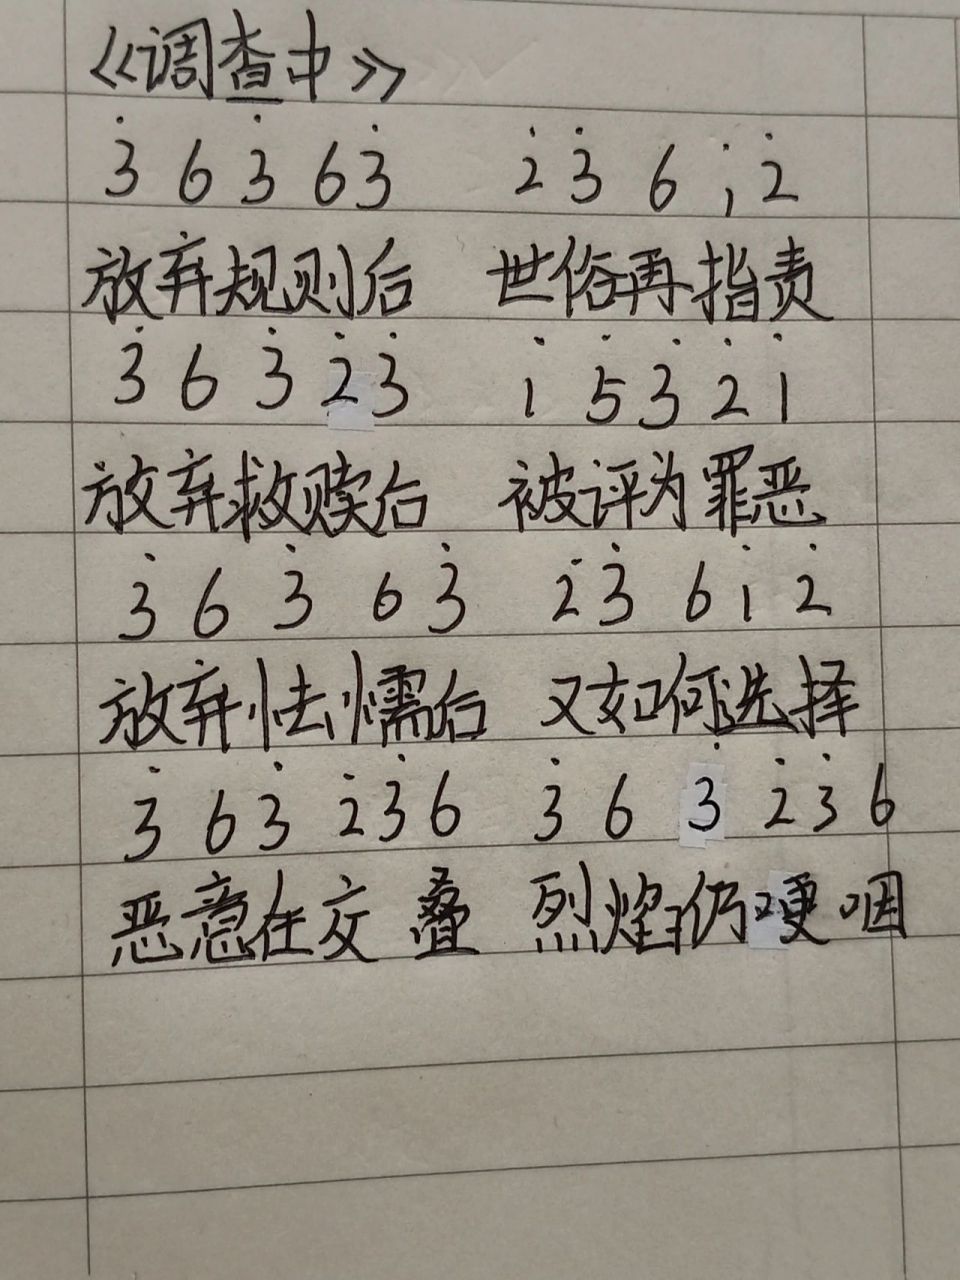 《调查中》
3̇ 6 3̇ 6 3̇  2̇ 3̇ 6 1̇ 2̇
放弃规则后 世俗再指责
3̇ 6 3̇ 2̇ 3̇  1̇ 5̇ 3̇ 2̇ 1̇
放弃救赎后 被评为罪恶
3̇ 6 3̇ 6 3̇  2̇ 3̇ 6 1̇ 2̇
放弃怯懦后 又如何选择
3̇ 6 3̇ 2̇ 3̇ 6  3̇ 6 3̇ 2̇ 3̇ 6
恶意在交叠 烈焰仍哽咽